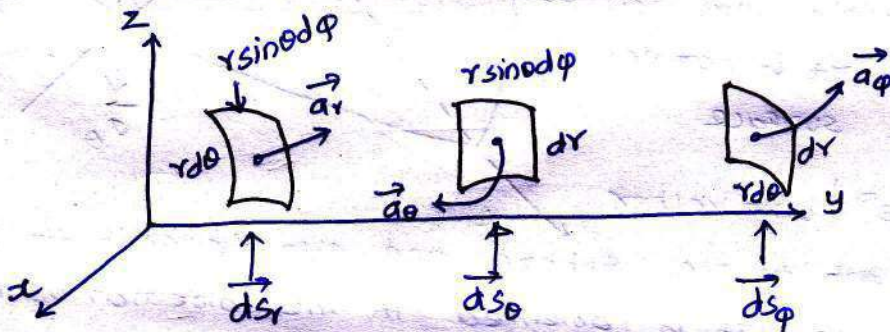 z
r sinθdφ
a⃗r
rdθ
r sinθdφ
dr
a⃗θ
a⃗φ
dr
rdθ
y
x
d⃗sr
d⃗sθ
d⃗sφ